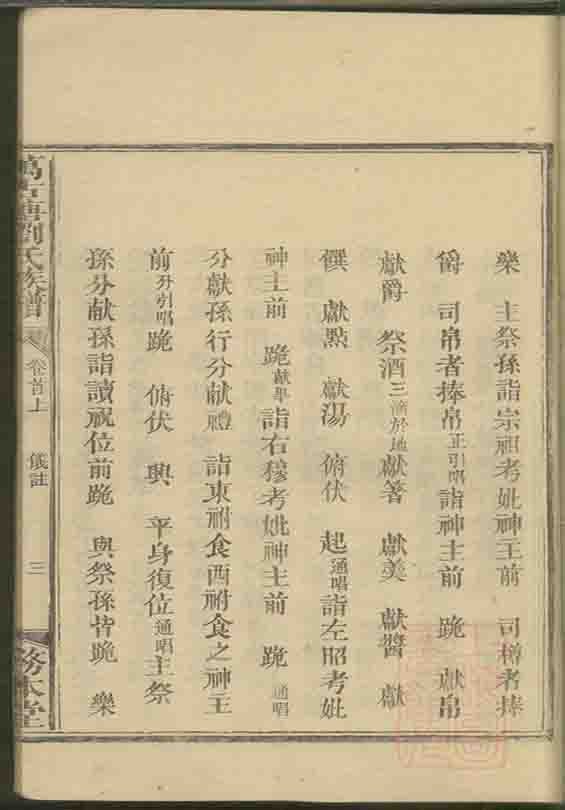 樂 主祭孫詣宗祖考妣神主前 司樽者捧
爵 司帛者捧帛正引唱詣神主前 跪 獻帛
獻爵 祭酒三滴於地獻箸 獻羹 獻醬 獻
饌 獻點 獻湯 俯伏 起通唱詣左昭考妣
神主前 跪獻畢詣右穆考妣神主前 跪通唱
分獻孫行分献禮 詣東祔食西祔食之神主
前分引唱跪 俯伏 興 平身復位通唱主祭
孫分献孫詣讀祝位前跪 與祭孫皆跪 樂
劉氏族譜 卷首上 儀註 三 務本堂